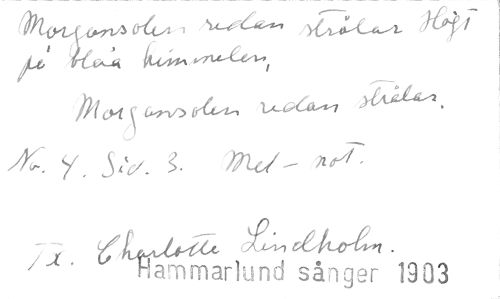 Morgonsolen redan strålar Högt
på blåa himmelen,
Morgonsolen redan strålar.
No. 4. Sid. 3. Med-not.
Tx. Charlotte Lindholm.
Hammarlund sånger 1903